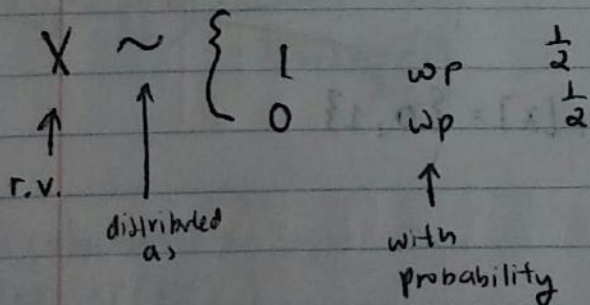 X ~ { 1 wp 1/2
0 wp 1/2
↑ ↑ ↑
r.v. distributed as with probability